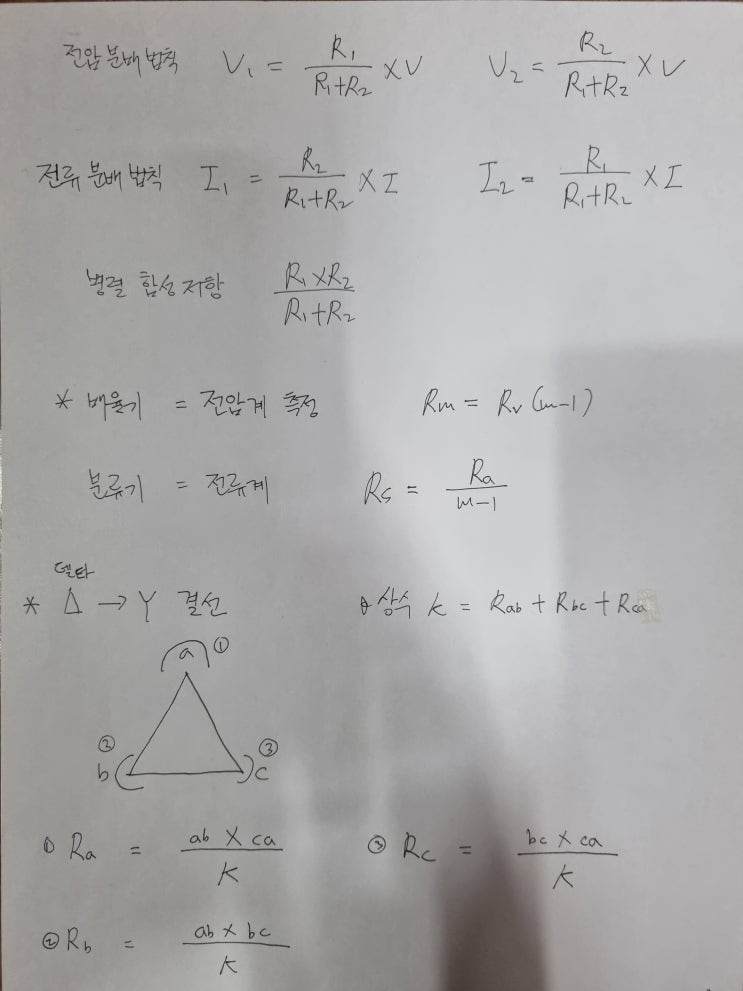 전압 분배 법칙 V₁ = R₁/(R₁+R₂) × V V₂ = R₂/(R₁+R₂) × V
전류 분배 법칙 I₁ = R₂/(R₁+R₂) × I I₂ = R₁/(R₁+R₂) × I
병렬 합성 저항 (R₁×R₂)/(R₁+R₂)
* 배율기 = 전압계 측정 Rm = Rv (m-1)
분류기 = 전류계 Rs = Ra/(m-1)
델타
* Δ → Y 결선 상식 K = Rab + Rbc + Rca
a ①
② ③
b c
① Ra = (ab × ca)/K ③ Rc = (bc × ca)/K
② Rb = (ab × bc)/K